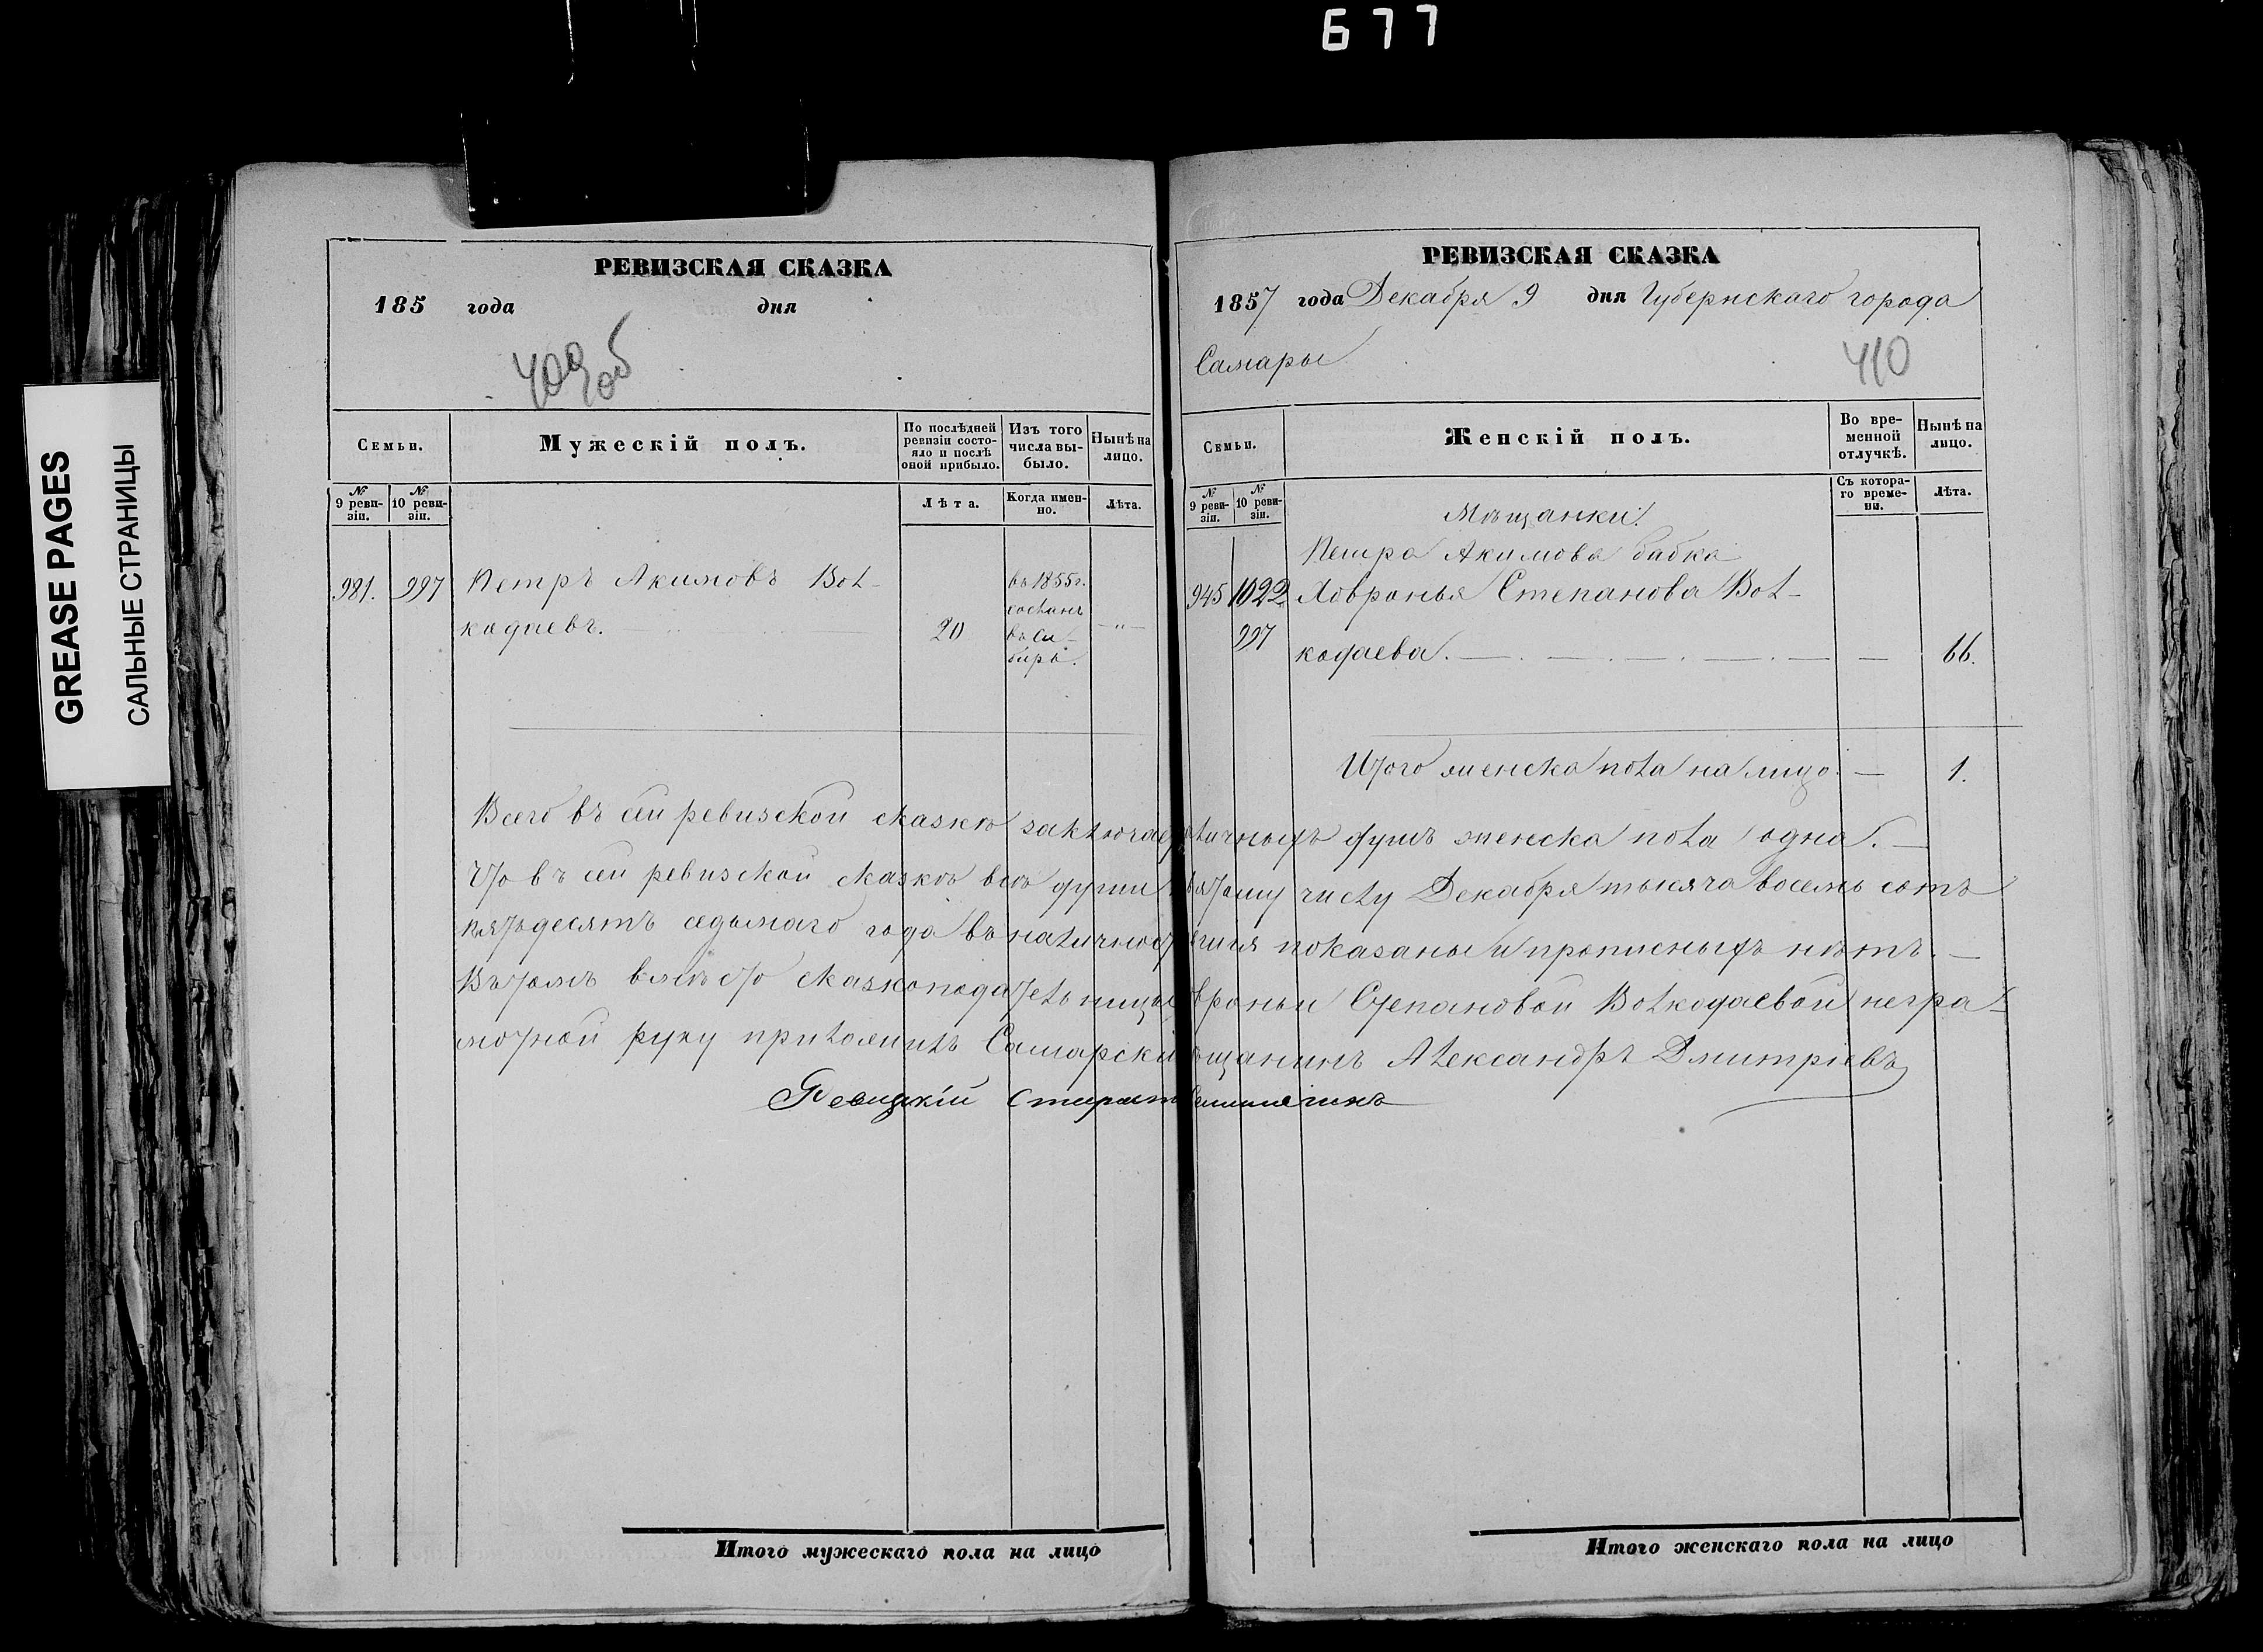 677
GREASE PAGES
САЛЬНЫЕ СТРАНИЦЫ
РЕВИЗСКАЯ СКАЗКА
185 года дня
409об
Семьи.
Мужескій полъ.
По послѣдней ревизіи состояло и послѣ оной прибыло.
Изъ того числа выбыло.
Нынѣ на лицо.
№ 9 ревизіи.
№ 10 ревизіи.
Лѣта.
Когда именно.
Лѣта.
981. 997 Петръ Акимовъ Вол-
кодаевъ. 20 —"—
въ 1855 г.
сосланъ
въ Си-
бирь.
РЕВИЗСКАЯ СКАЗКА
1857 года Декабря 9 дня Губернскаго города
Самары
410
Семьи.
Женскій полъ.
Во временной отлучкѣ.
Нынѣ на лицо.
№ 9 ревизіи.
№ 10 ревизіи.
Съ котораго времени.
Лѣта.
Мѣщанки:
Петра Акимова бабка
945 1022 Ховронья Степанова Вол-
997 кодаева. — 66.
Итого женска пола на лицо. — 1.
Всего въ сей ревизской сказкѣ заключае личныхъ душъ женска пола одна. —
Что въ сей ревизской сказкѣ всѣ души вятому числу Декабря тысяча восемь сотъ
пятьдесятъ седьмаго года въ наличност показаны и прописныхъ нѣтъ. —
Въ томъ вмѣсто сказкоподательницы вроньи Степановой Волкодаевой негра-
мотной руку приложилъ Самарскі щанинъ Александръ Дмитріевъ
Итого мужескаго пола на лицо
Итого женскаго пола на лицо